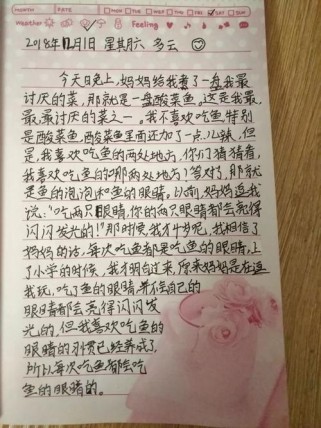 MONTH DATE MON TUE WED THU FRI SAT SUN
Weather Feeling
2018年12月1日 星期六 多云
今天晚上,妈妈给我煮了一盘我最
讨厌的菜,那就是一盘酸菜鱼,这是我最,
最,最讨厌的菜之一,我不喜欢吃鱼,特别
是酸菜鱼,酸菜鱼里面还加了一点儿辣,但
是,我喜欢吃鱼的两处地方,你们猜猜看,
我喜欢吃鱼的哪两处地方?答对了,那就
是鱼的泡泡和鱼的眼睛,以前,妈妈逗我
说:"吃两只眼睛,你的两只眼睛都会亮得
闪闪发光的!"那时侯我才4岁呢,我相信了
妈妈的话,每次吃鱼都是吃鱼的眼睛,上
了小学的时候,我才明白过来,原来妈妈是在逗
我玩,吃了鱼的眼睛并不会自己的
眼睛都会亮得闪闪发
光的,但我喜欢吃鱼的
眼睛的习惯已经养成了,
所以每次吃鱼都会吃
鱼的眼睛的。